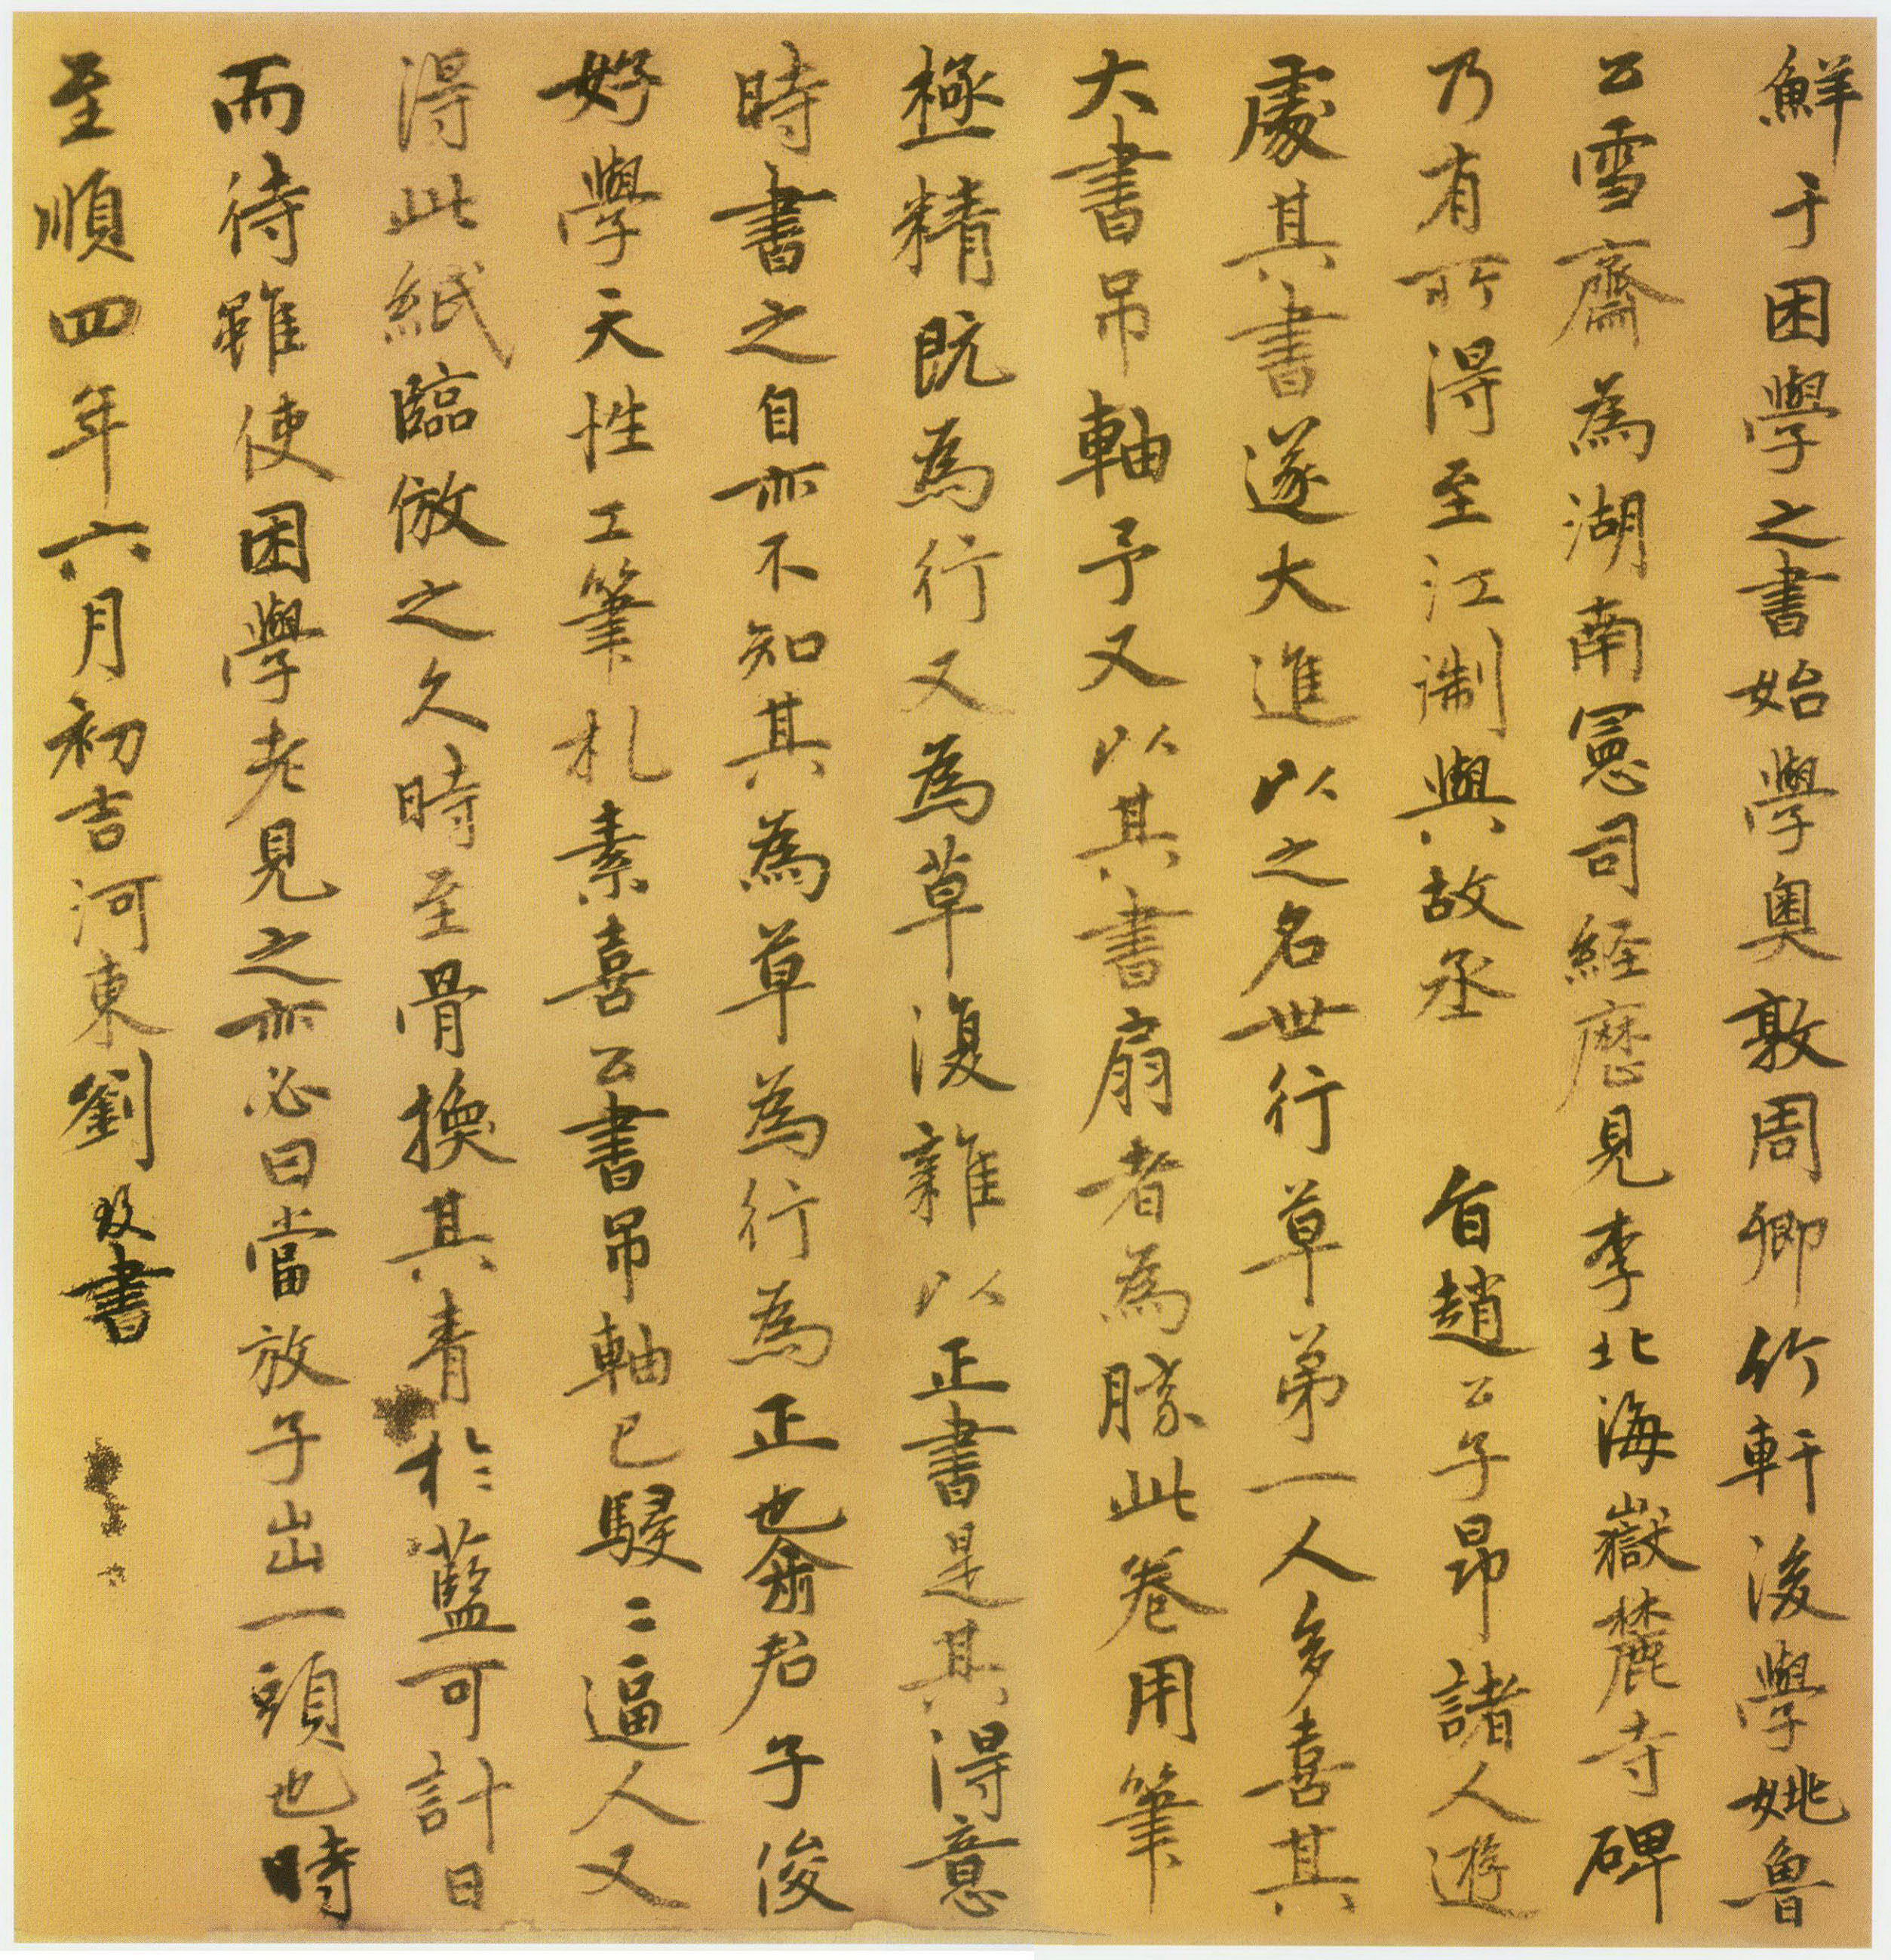 鮮于困學之書始學奧敦周卿竹軒後學姚魯
公雪齋為湖南憲司經歷見李北海嶽麓寺碑
乃有所得至江浙與故丞 旨趙公子昂諸人遊
處其書遂大進以之名世行草弟一人多喜其
大書吊軸予又以其書扇者為勝此卷用筆
極精既為行又為草復雜以正書是其得意
時書之自亦不知其為草為行為正也俞君子俊
好學天性工筆札素喜公書吊軸已駸〻逼人又
得此紙臨倣之久時至骨換其青於藍可計日
而待雖使困學老見之亦必曰當放子出一頭也時
至順四年六月初吉河東劉致書